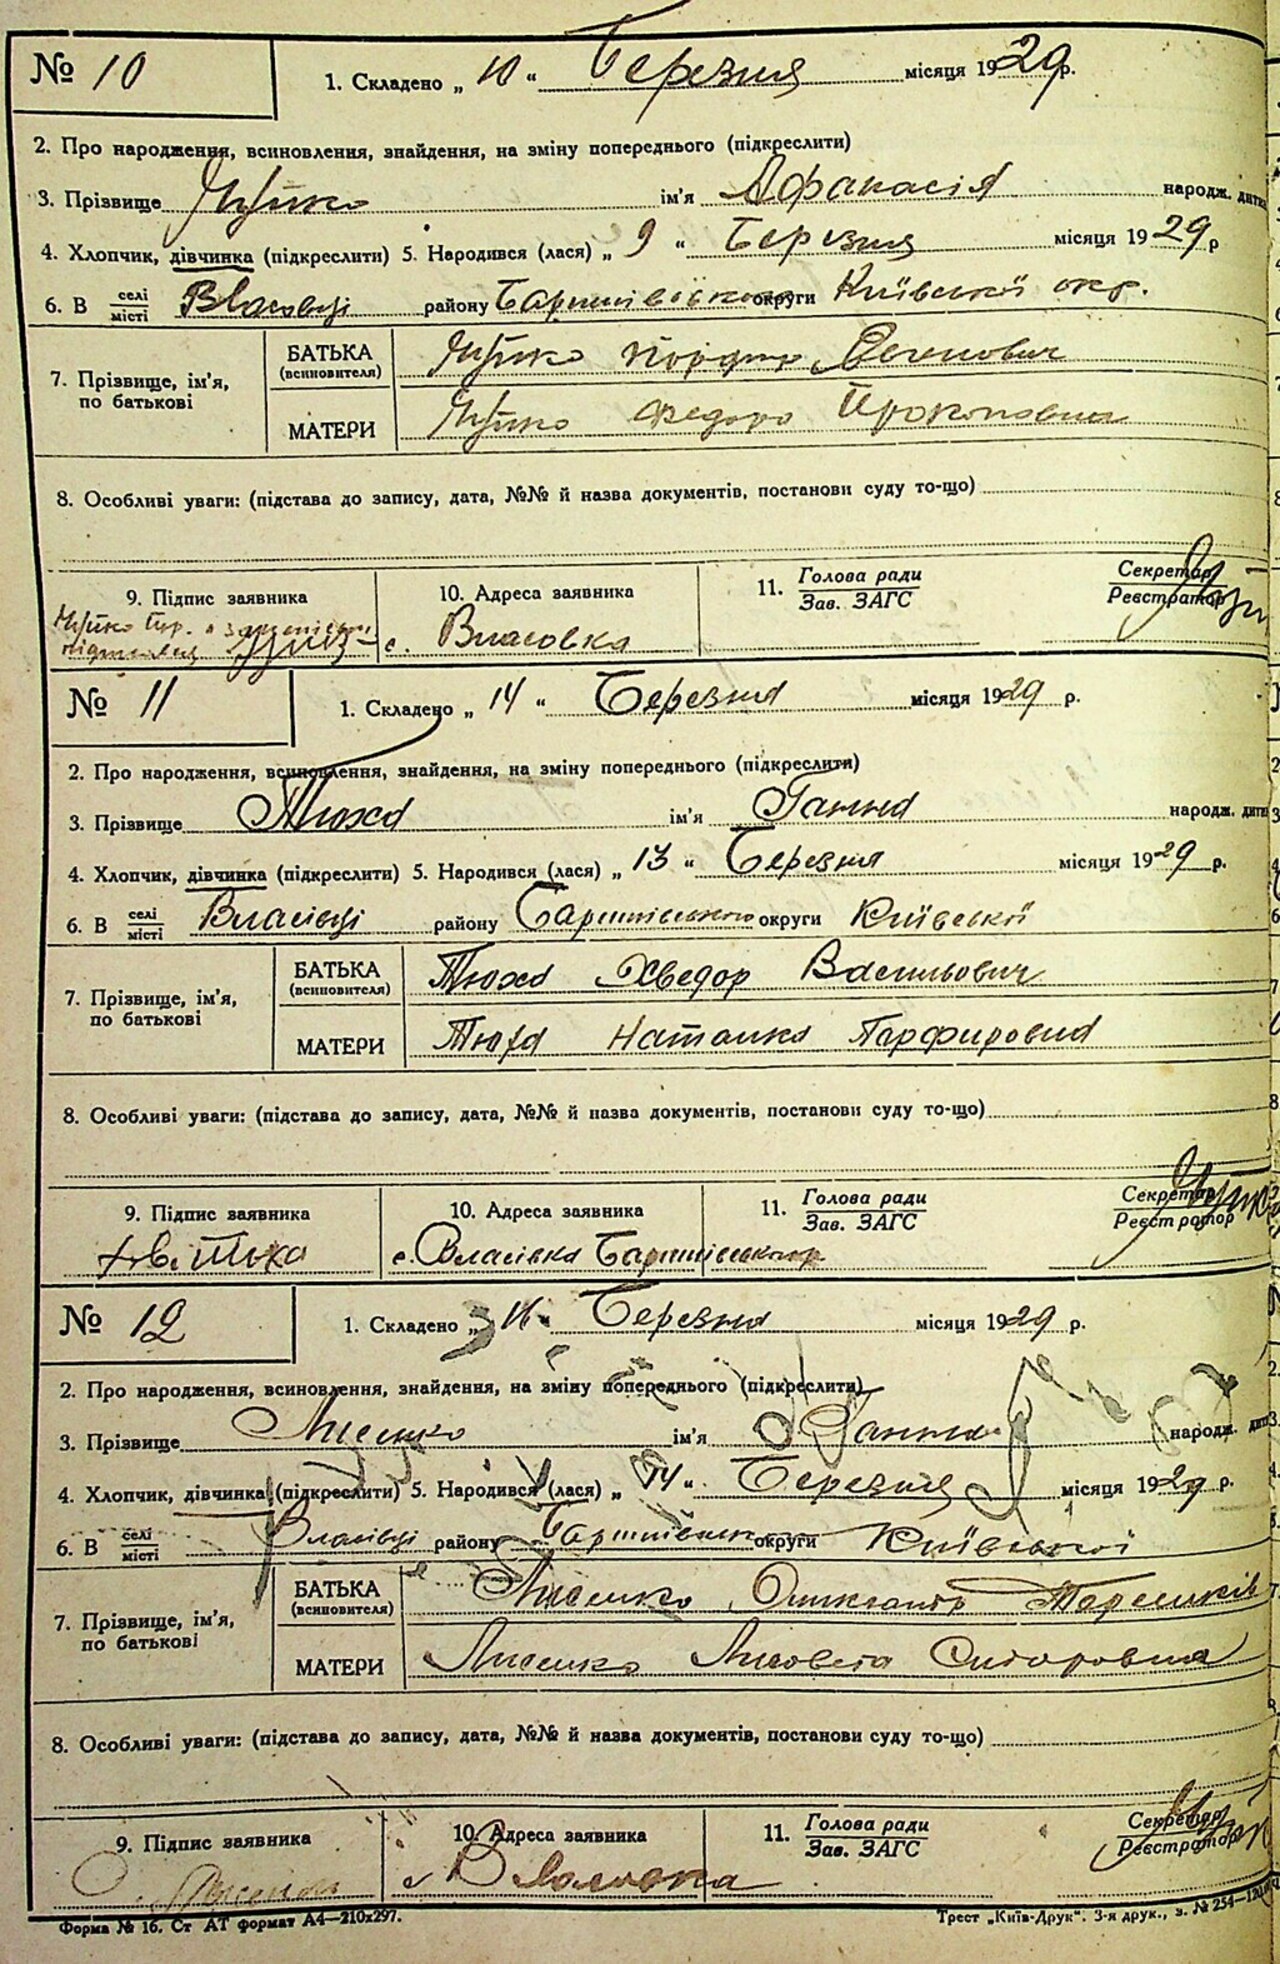 № 10
1. Складено „ 10 “ Березня місяця 1929 р.
2. Про народження, всиновлення, знайдення, на зміну попереднього (підкреслити)
3. Прізвище ім'я Афанасія народж. дитини
4. Хлопчик, дівчинка (підкреслити) 5. Народився (лася) „ 9 “ Березня місяця 1929 р
6. В селі місті Власовці району Баришівського округи Київської окр.
7. Прізвище, ім'я, по батькові
БАТЬКА (всиновителя)
МАТЕРИ Федора Прокоповна
8. Особливі уваги: (підстава до запису, дата, №№ й назва документів, постанови суду то-що)
9. Підпис заявника
10. Адреса заявника
11. Голова ради Зав. ЗАГС
Секретар Реєстратор
с. Власовка
№ 11
1. Складено „ 14 “ Березня місяця 1929 р.
2. Про народження, всиновлення, знайдення, на зміну попереднього (підкреслити)
3. Прізвище Тюха ім'я Ганна народж. дити
4. Хлопчик, дівчинка (підкреслити) 5. Народився (лася) „ 13 “ Березня місяця 1929 р.
6. В селі місті Власівці району Баришівського округи Київської
7. Прізвище, ім'я, по батькові
БАТЬКА (всиновителя) Тюха Хведор Васильович
МАТЕРИ Тюха Наталка Парфировна
8. Особливі уваги: (підстава до запису, дата, №№ й назва документів, постанови суду то-що)
9. Підпис заявника
10. Адреса заявника
11. Голова ради Зав. ЗАГС
Секретар Реєстратор
с. Власівка Баришівського
№ 12
1. Складено „ 16 “ Березня місяця 1929 р.
2. Про народження, всиновлення, знайдення, на зміну попереднього (підкреслити)
3. Прізвище Лисенко ім'я Ганна народж. дит
4. Хлопчик, дівчинка (підкреслити) 5. Народився (лася) „ 14 “ Березня місяця 1929 р.
6. В селі місті Власівці району Баришівськ округи Київської
7. Прізвище, ім'я, по батькові
БАТЬКА (всиновителя) Лисенко
МАТЕРИ Лисенко Лизовета Сидоровна
8. Особливі уваги: (підстава до запису, дата, №№ й назва документів, постанови суду то-що)
9. Підпис заявника
10. Адреса заявника
11. Голова ради Зав. ЗАГС
Секретар Реєстратор
с Власовка
Форма № 16. Ст АТ формат А4—210х297.
Трест „Київ-Друк“. 3-я друк., з. № 254—120